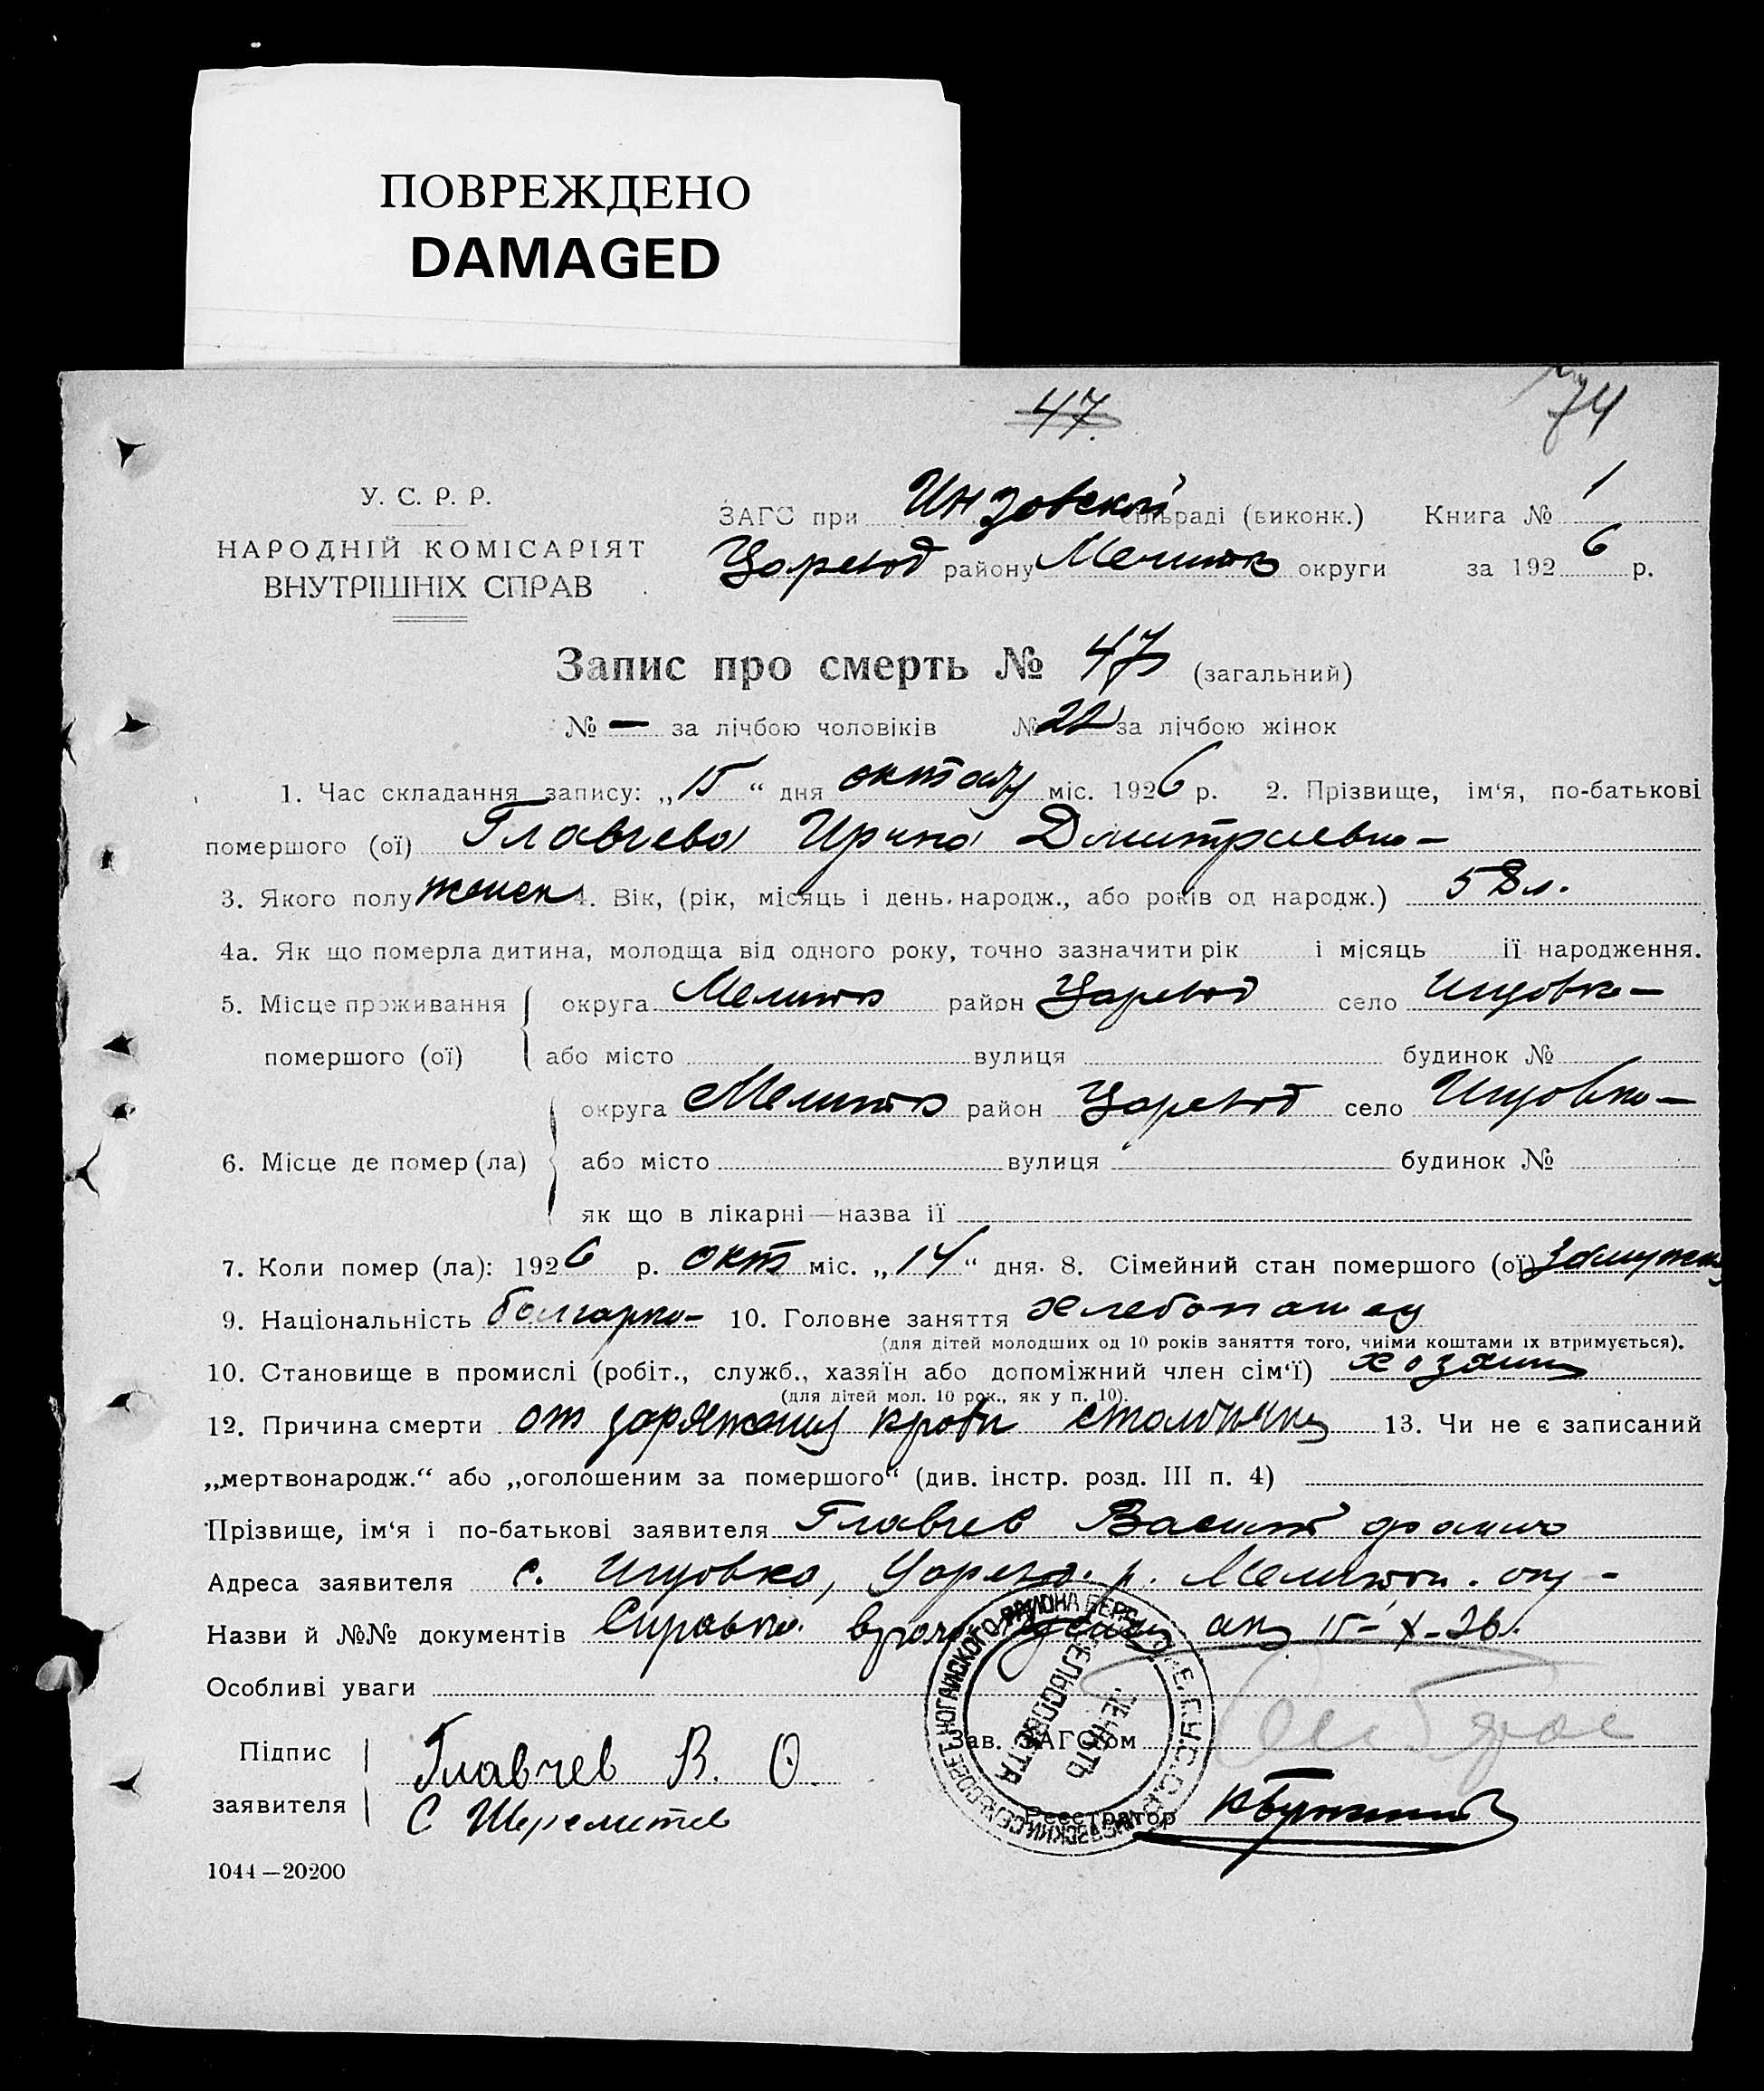 ПОВРЕЖДЕНО
DAMAGED
47.
74
У. С. Р. Р.
НАРОДНІЙ КОМІСАРІЯТ
ВНУТРІШНІХ СПРАВ
ЗАГС при Инзовской сільраді (виконк.) Книга № 1
Царевод району Мелитоп округи за 1926 р.
Запис про смерть № 47 (загальний)
№ — за лічбою чоловіків № 22 за лічбою жінок
1. Час складання запису: „15“ дня октября міс. 1926 р. 2. Прізвище, ім‘я, по-батькові
помершого (ої) Главчева Ирина Дмитриевна
3. Якого полу женск 4. Вік, (рік, місяць і день народж., або років од народж.) 58 л.
4а. Як що померла дитина, молодща від одного року, точно зазначити рік і місяць ії народження.
5. Місце проживання округа Мелитоп район Царевод село Инзовка
помершого (ої) або місто вулиця будинок №
округа Мелитоп район Царевод село Инзовка
6. Місце де помер (ла) або місто вулиця будинок №
як що в лікарні—назва ії
7. Коли помер (ла): 1926 р. окт міс. „14“ дня. 8. Сімейний стан помершого (ої) замужня
9. Національність болгарка 10. Головне заняття хлебопашец
(для дітей молодших од 10 років заняття того, чиїми коштами їх втримується).
10. Становище в промислі (робіт., служб., хазяїн або допоміжний член сім‘ї) хозяин
(для дітей мол. 10 рок., як у п. 10).
12. Причина смерти от заражения крови 13. Чи не є записаний
„мертвонародж.“ або „оголошеним за помершого“ (див. інстр. розд. III п. 4)
Прізвище, ім‘я і по-батькові заявителя Главчев Василий
Адреса заявителя с. Инзовка, Царевод. р. Мелитоп. окр
Назви й №№ документів Справка врача 15-X-26.
Особливі уваги
Підпис Главчев В. О.
заявителя С Шереметев
Зав. ЗАГСом
Реєстратор
ПЕЧАТЬ
СЕЛЬСОВЕТА
1044—20200